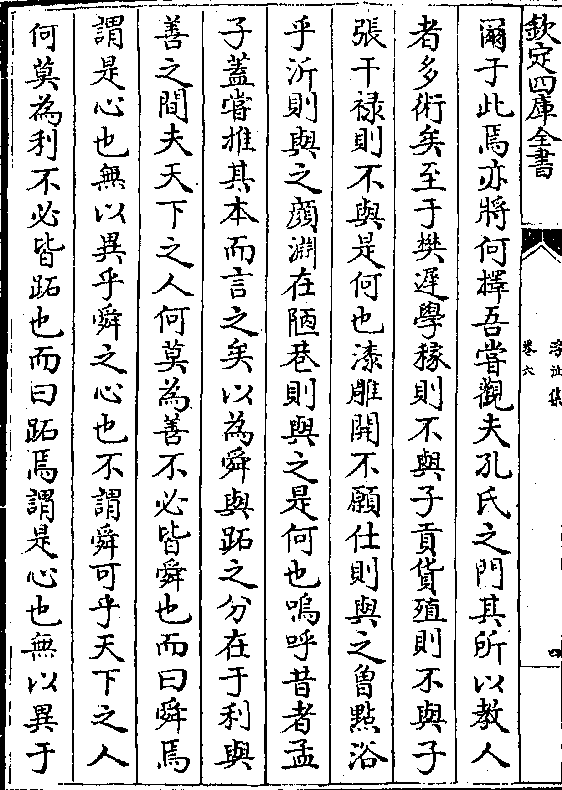 欽定四庫全書
浮沚集
卷六
四
爾于此焉亦將何擇吾嘗觀夫孔氏之門其所以教人
者多術矣至于樊遲學稼則不與子貢貨殖則不與子
張干禄則不與是何也漆雕開不願仕則與之曾㸃浴
乎沂則與之顔淵在陋巷則與之是何也嗚呼昔者孟
子蓋嘗推其本而言之矣以為舜與跖之分在于利與
善之間夫天下之人何莫為善不必皆舜也而曰舜焉
謂是心也無以異乎舜之心也不謂舜可乎天下之人
何莫為利不必皆跖也而曰跖焉謂是心也無以異于